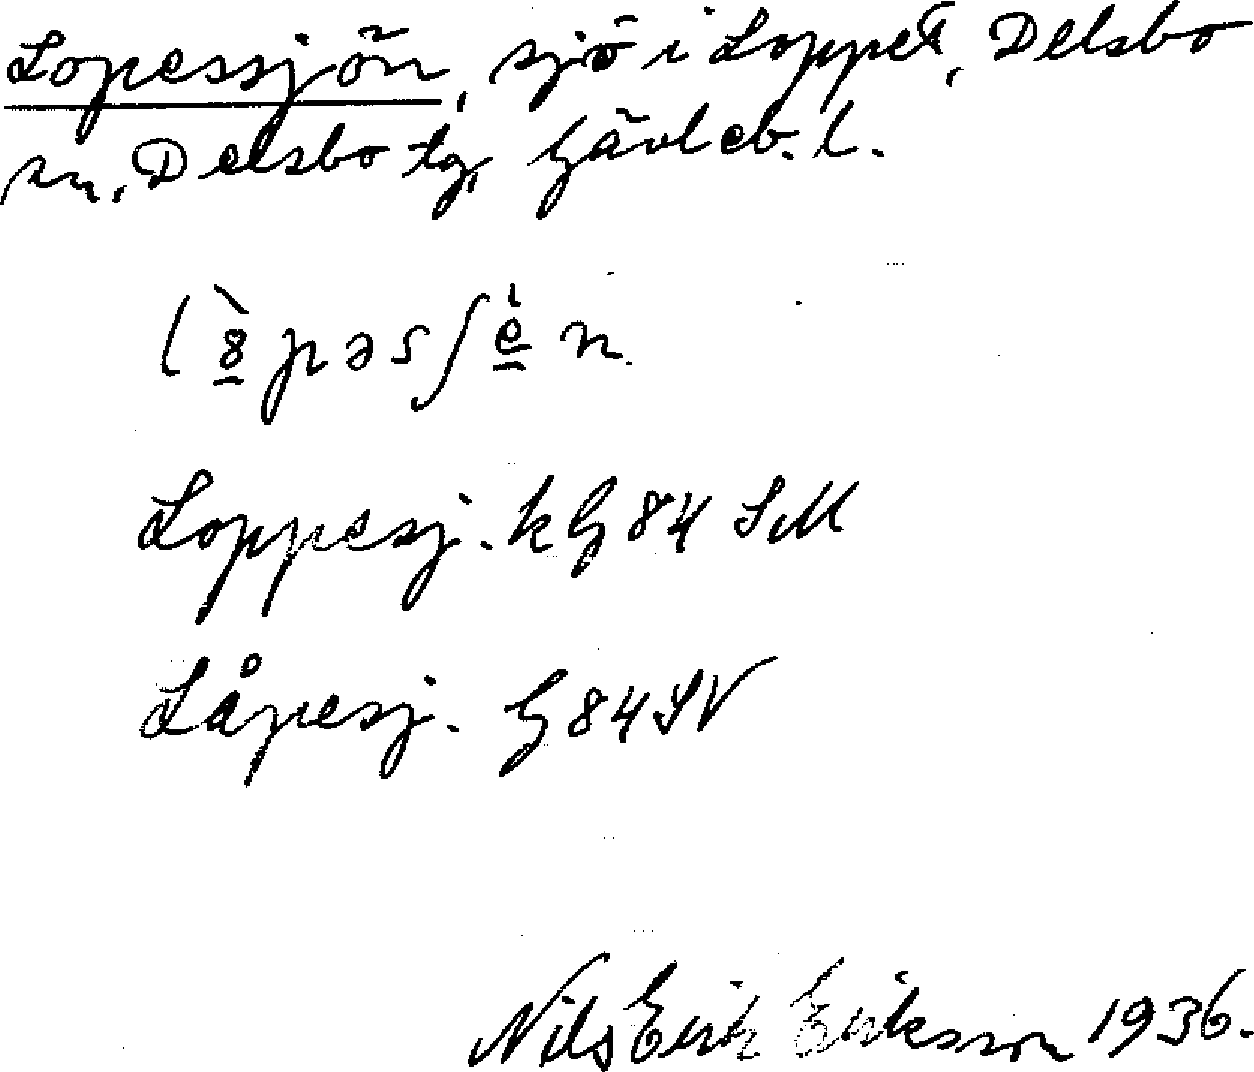 Lopessjön, sjö i Loppet, Delsbo
sn, Delsbo tg, Gävleb. l.
l 8̲̀ p ə s ʃ è̲ n
Loppesj. kG 84 SM
Låpesj. G 84 SV
Nils Erik Eriksson 1936.